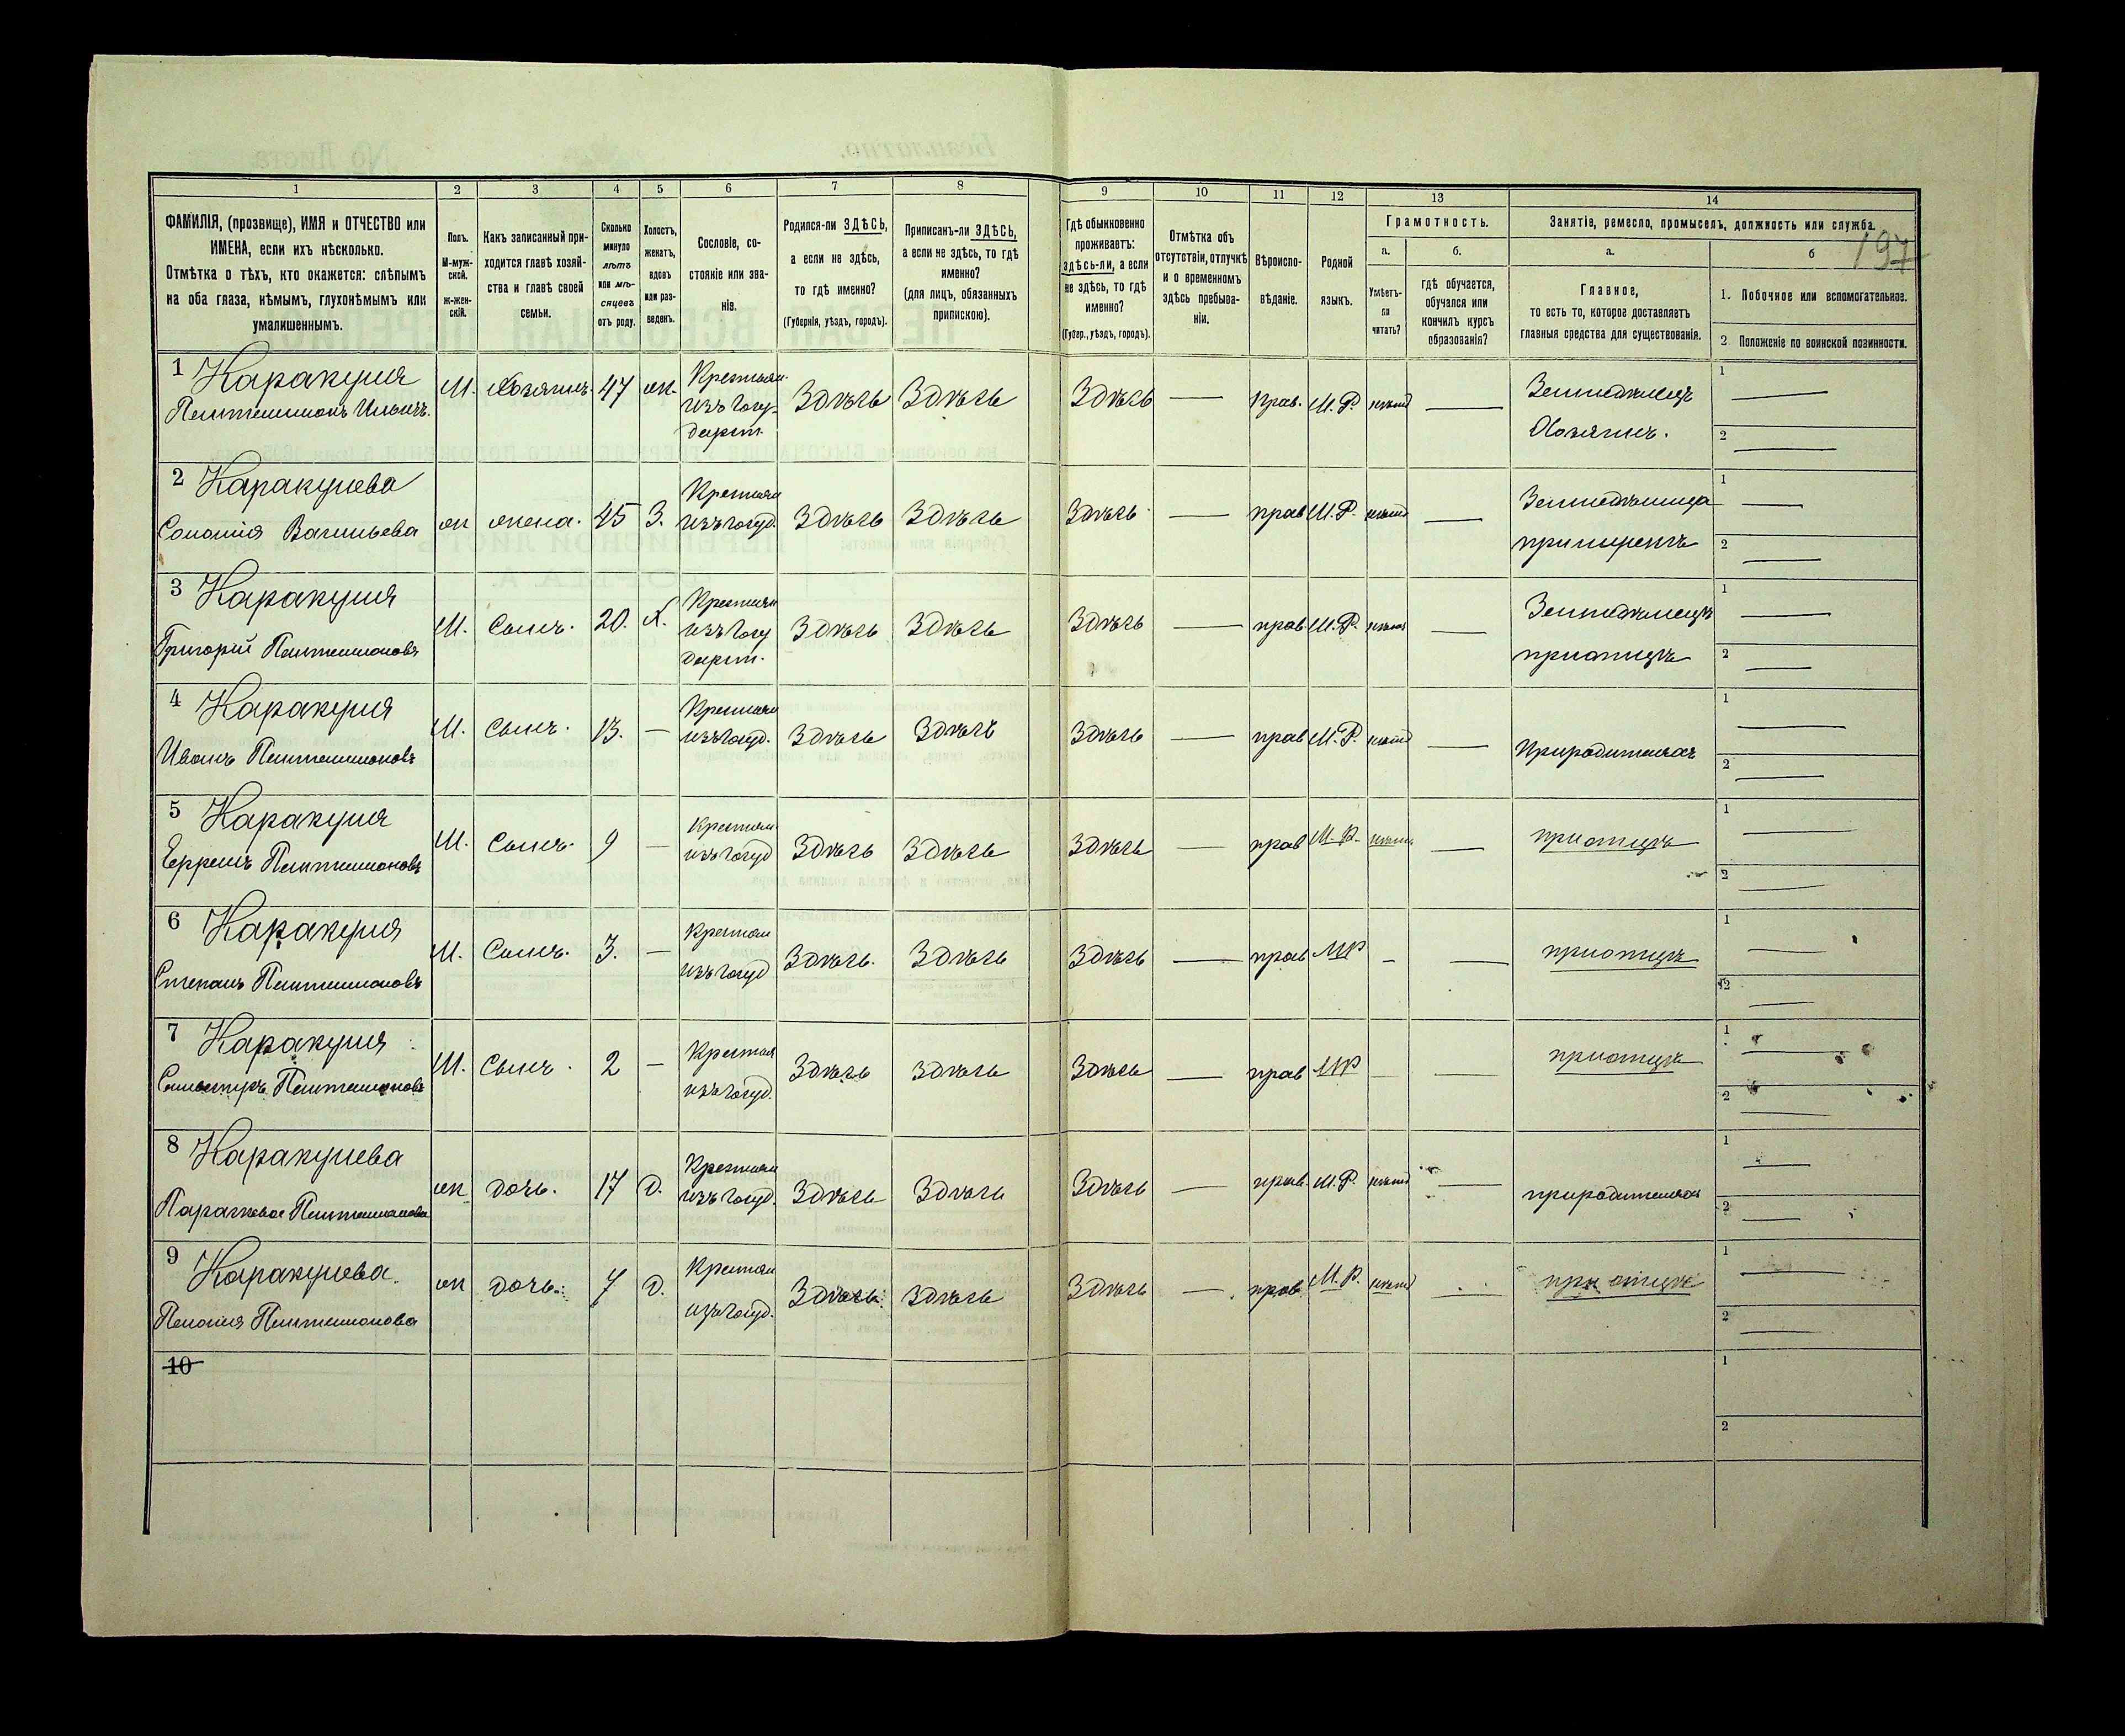 1 2 3 4 5 6 7 8 9 10 11 12 13 14
ФАМИЛІЯ, (прозвище), ИМЯ и ОТЧЕСТВО или
ИМЕНА, если ихъ нѣсколько.
Отмѣтка о тѣхъ, кто окажется: слѣпымъ
на оба глаза, нѣмымъ, глухонѣмымъ или
умалишеннымъ.
Полъ.
М-муж-
ской.
ж-жен-
скій.
Какъ записанный при-
ходится главѣ хозяй-
ства и главѣ своей
семьи.
Сколько
минуло
лѣтъ
или мѣ-
сяцевъ
отъ роду.
Холостъ,
женатъ,
вдовъ
или раз-
веденъ.
Сословіе, со-
стояніе или зва-
ніе.
Родился-ли ЗДѢСЬ,
а если не здѣсь,
то гдѣ именно?
(Губернія, уѣздъ, городъ).
Приписанъ-ли ЗДѢСЬ,
а если не здѣсь, то гдѣ
именно?
(для лицъ, обязанныхъ
припискою).
Гдѣ обыкновенно
проживаетъ:
здѣсь-ли, а если
не здѣсь, то гдѣ
именно?
(Губер., уѣздъ, городъ).
Отмѣтка объ
отсутствіи, отлучкѣ
и о временномъ
здѣсь пребыва-
ніи.
Вѣроиспо-
вѣданіе.
Родной
языкъ.
Грамотность.
а.
Умѣетъ-
ли
читать?
б.
гдѣ обучается,
обучался или
кончилъ курсъ
образованія?
Занятіе, ремесло, промыселъ, должность или служба.
197
а.
Главное,
то есть то, которое доставляетъ
главныя средства для существованія.
б
1. Побочное или вспомогательное.
2 Положеніе по воинской повинности.
1 Каракуця
Пантелимонъ Ильичъ.
М. Хозяинъ. 47 ж. Крестьян. изъ госу-дарст. Здѣсь Здѣсь Здѣсь — Прав. М.Р. нѣтъ — Земледѣлецъ Хозяинъ. 1 — 2 —
2 Каракуцева
Соломія Васильева
ж жена. 45 З. Крестьян изъ госуд. Здѣсь Здѣсь Здѣсь — прав М.Р. нѣтъ — Земледѣлица 1 — 2 —
3 Каракуця
Григорій Пантелимоновъ
М. Сынъ. 20. Х. Крестьян изъ госу дарст. Здѣсь Здѣсь Здѣсь — прав. М.Р. нѣтъ — Земледѣлецъ при отцѣ 1 — 2 —
4 Каракуця
Иванъ Пантелимоновъ
М. Сынъ. 13. — Крестьян изъ госуд. Здѣсь Здѣсь Здѣсь — прав М.Р. нѣтъ — При родителяхъ 1 — 2 —
5 Каракуця
Ефремъ Пантелимоновъ
М. Сынъ. 9 — Крестьян изъ госуд Здѣсь Здѣсь Здѣсь — прав М.Р. нѣтъ — при отцѣ 1 — 2 —
6 Каракуця
Степанъ Пантелимоновъ
М. Сынъ. 3. — Крестьян изъ госуд Здѣсь. Здѣсь Здѣсь — прав МР — — при отцѣ 1 — 2 —
7 Каракуця
Сильвестръ Пантелимоновъ
М. Сынъ. 2 — Крестьян изъ госуд. Здѣсь Здѣсь Здѣсь — прав МР — — при отцѣ 1 — 2 —
8 Каракуцева
Параскева Пантелимонова
ж дочь. 17 д. Крестьян изъ госуд. Здѣсь Здѣсь Здѣсь — прав. М.Р. нѣтъ — при родителяхъ 1 — 2 —
9 Каракуцева.
Пелагия Пантелимонова
ж дочь. 7 д. Крестьян изъ госуд. Здѣсь Здѣсь Здѣсь — прав М.Р. нѣтъ — при отцѣ 1 — 2 —
10 1 2